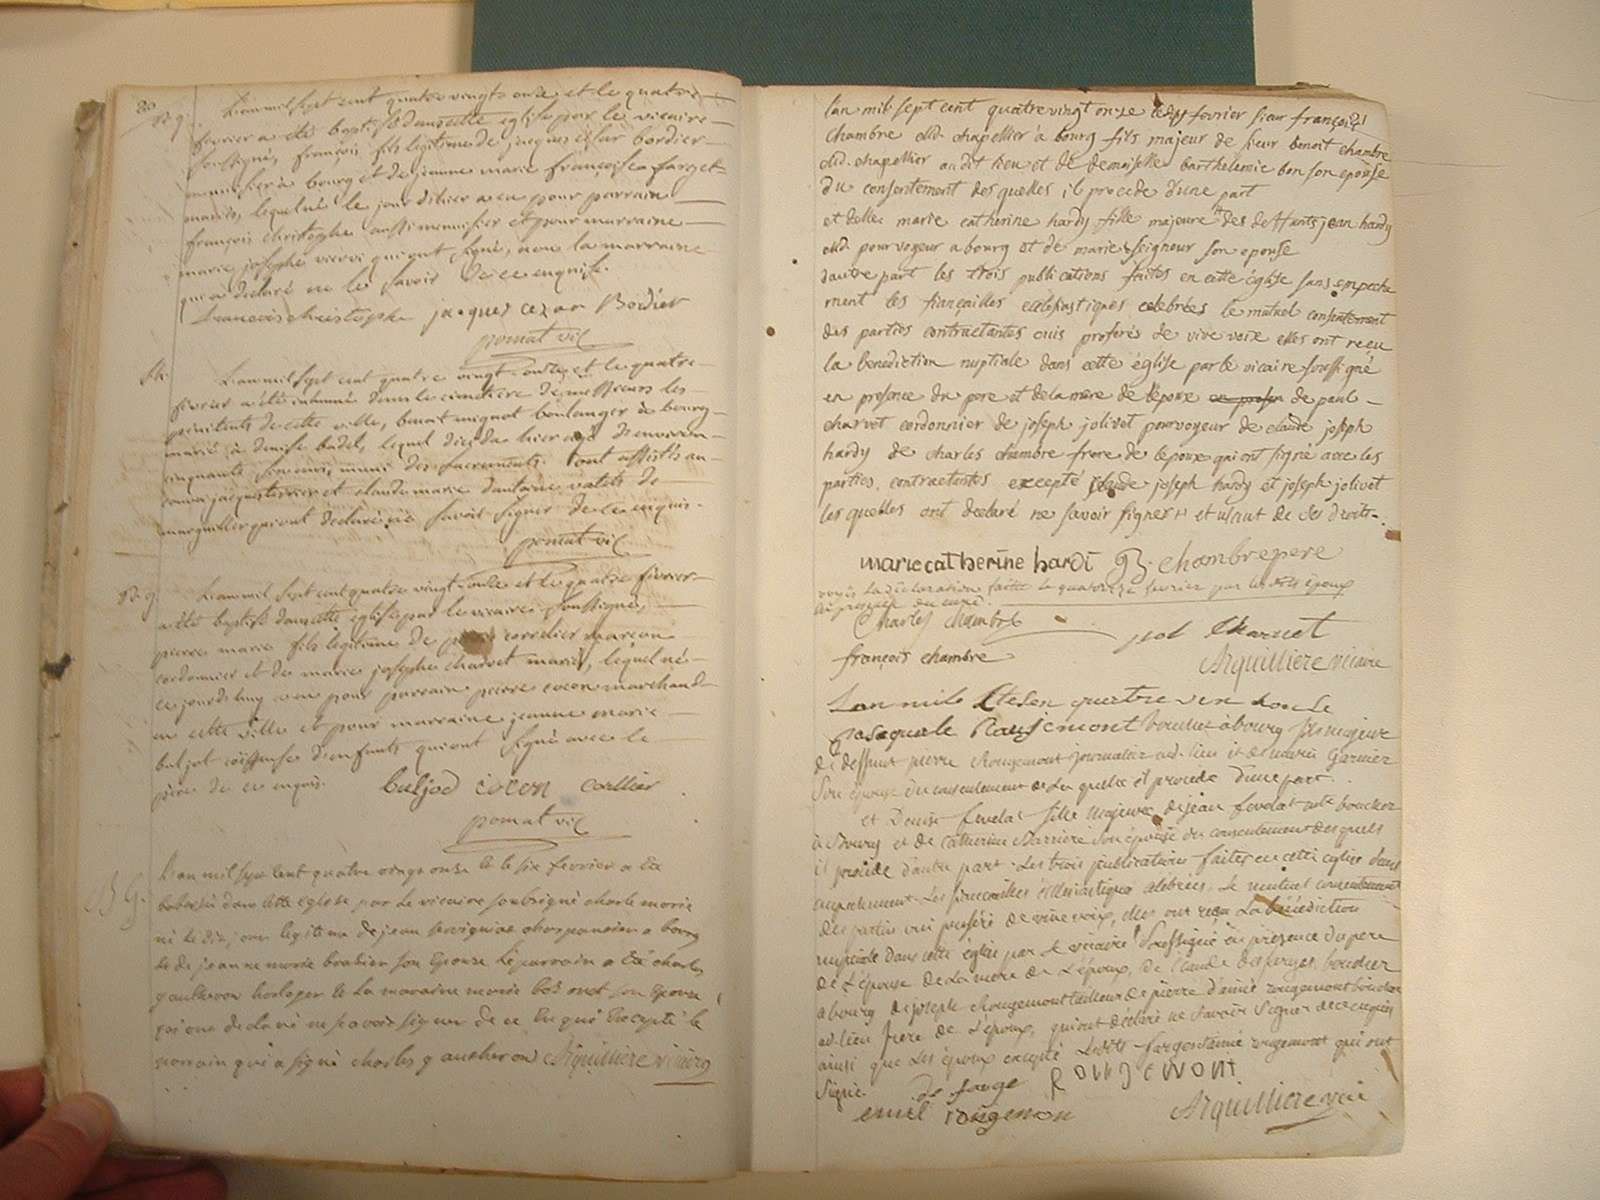 20
B. g.
L'an mil sept cent quatre vingt onze et le quatre
fevrier a été baptisé dans cette eglise par le vicaire
soussigné, françois fils legitime de jacques césar bordier
menuisier à bourg et de jeanne marie françoise farget
mariés, lequel né le jour d'hier a eu pour parrain
françois christophe aussi menuisier et pour marraine
marie josephe qui ont signé, non la marraine
qui a declaré ne le savoir de ce enquise.
francois christophe jacques cezar Bordier
pomat vic
L'an mil sept cent quatre vingt onze et le quatre
fevrier a été inhumé dans le cimetiere de messieurs les
penitents de cette ville, benoit mignot boulanger de bourg
marié à denise badel, lequel décédé hier agé d'environ
cinquante six ans, muni des sacrements. tout assistés au
convoi jacques et claude marie valets de
marguillier qui ont declaré ne savoir signer de ce enquis.
pomat vic
B. g.
L'an mil sept cent quatre vingt onze et le quatre fevrier
a été baptisé dans cette eglise par le vicaire soussigné,
pierre marie fils legitime de cordier marçon
cordonnier et de marie josephe charvet mariés, lequel né
ce jourdhuy a eu pour parrain pierre cocon marchand
en cette ville et pour marraine jeanne marie
buljot d'enfants qui ont signé avec le
père de ce enquis.
buljod cocon cordier
pomat vic
B G.
L'an mil sept cent quatre vingt onze et le six fevrier a été
batisé dans cette eglise par le vicaire soubsigné charle marie
né le dix, legitime de jean charpantier a bourg
et de jeanne marie bradier son epouse le parrain a été charles
gautheron horloger et la maraine marie son epouse
qui ont declaré ne savoir signer de ce enquis excepté le
parrain qui a signé charles gautheron Arquilliere vicaire
l'an mil sept cent quatre vingt onze le fevrier sieur françois
chambre md. chapellier à bourg fils majeur de sieur benoit chambre
md. chapellier au dit lieu et de demoiselle barthelemie bon son epouse
du consentement des quelles il procede d'une part
et delle. marie catherine hardy fille majeure des deffunts jean hardy
md. pourvoyeur a bourg et de marie seigneur son epouse
dautre part les trois publications faites en cette église sans empeche
ment les fiançailles ecclesiastiques celebrées le mutuel consentement
des parties contractantes ouis proferés de vive voix elles ont recu
la benediction nuptiale dans cette église par le vicaire soussigné
en presence du pere et de la mere de l'epoux de paul
charvet cordonnier de joseph jolivet pourvoyeur de claude joseph
hardy de charles chambre frere de lepoux qui ont signé avec les
parties contractantes excepté claude joseph hardy et joseph jolivet
les quelles ont declaré ne savoir signer et usant de ses droits.
marie catherine hardi B. chambre pere
la declaration faitte le quatorze fevrier par les epoux
en presence du curé
Charles chambre
pol Charvet
françois chambre
Arquilliere vicaire
L'an mil quatre ven
pasquale Rougemont boucher à bourg fils majeur
de deffunt pierre rougemont journalier aud. lieu et de marie Garnier
son épouse du consentement de la quelle il procede d'une part.
et Denise fevelat fille majeure de jean fevelat mtre boucher
à Bourg et de Catherine Barriere son épouse du consentement desquels
il procede d'autre part. Les trois publications faites en cette eglise sans
empechement. Les fiancailles ecclesiastiques celebrées. Le mutuel consentement
des parties oui proferé de vive voix, elles ont recu la bénédiction
nuptiale dans cette église par le vicaire soussigné en présence du pere
de L'épouse de la mere de L'époux, de Claude desfarges boucher
a bourg de joseph Rougemont tailleur de pierre d'aimé rougemont boucher
ad. lieu frere de L'époux, qui ont déclaré ne savoir signer de ce enquis
ainsi que Les époux excepté Lesdits farges aimé rougemont qui ont
signé.
de farge ROUGEMONT
emel rougemon Arquilliere vicai